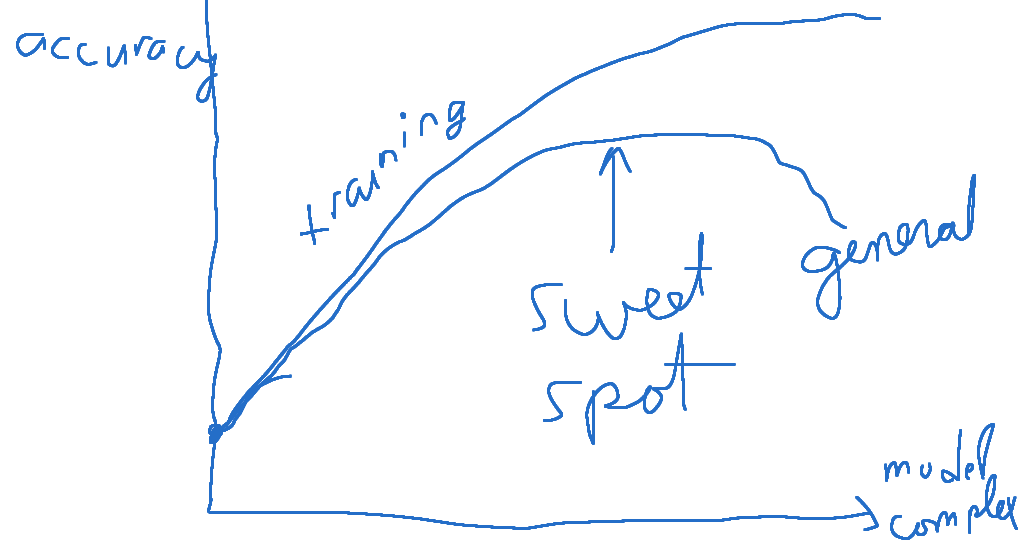 accuracy
training
general
sweet
spot
model
complex